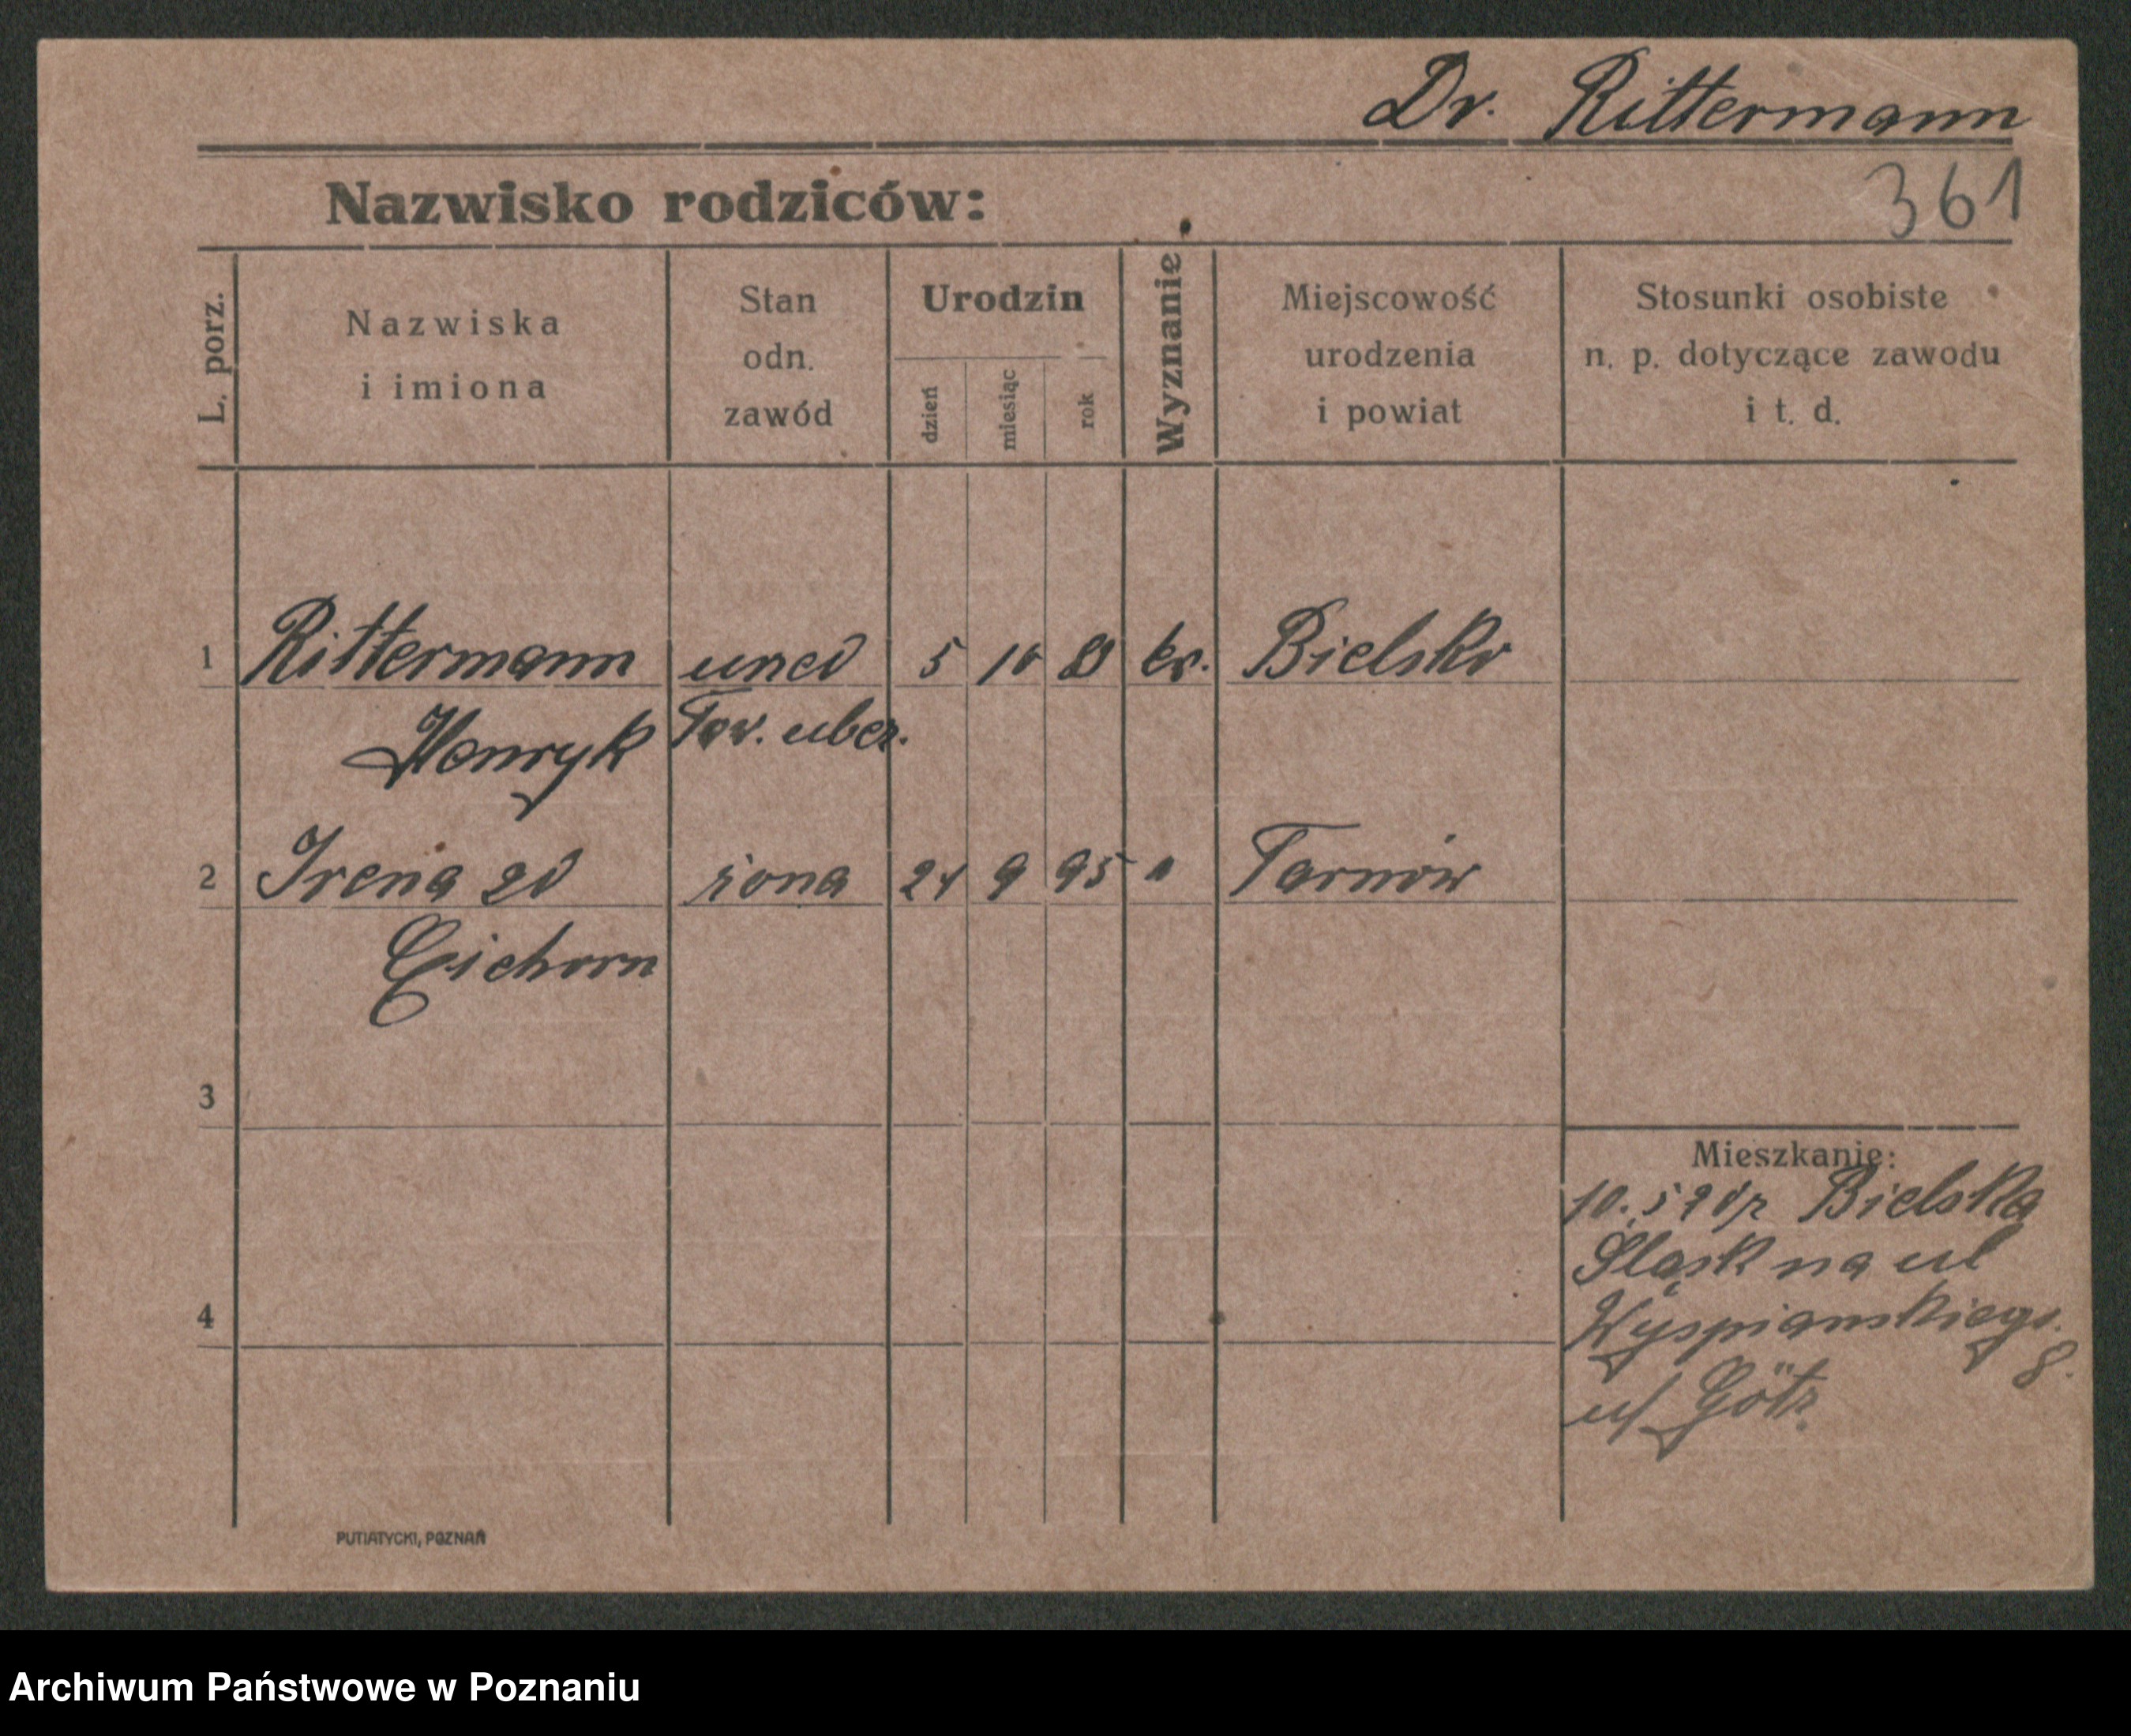 Dr. Rittermann
361
Nazwisko rodziców:
L. porz.
Nazwiska
i imiona
Stan
odn.
zawód
Urodzin
dzień
miesiąc
rok
Wyznanie
Miejscowość
urodzenia
i powiat
Stosunki osobiste
n. p. dotyczące zawodu
i t. d.
1 Rittermann 5 10 Bielsko
Henryk Tow. ubez.
2 Irena żona 24 9 95 " Tarnów
Eichorn
3
Mieszkanie:
10. 5 Bielska
Śląsk na ul
4
Wyspianskiego
8.
u/ Götz.
PUTIATYCKI, POZNAŃ
Archiwum Państwowe w Poznaniu